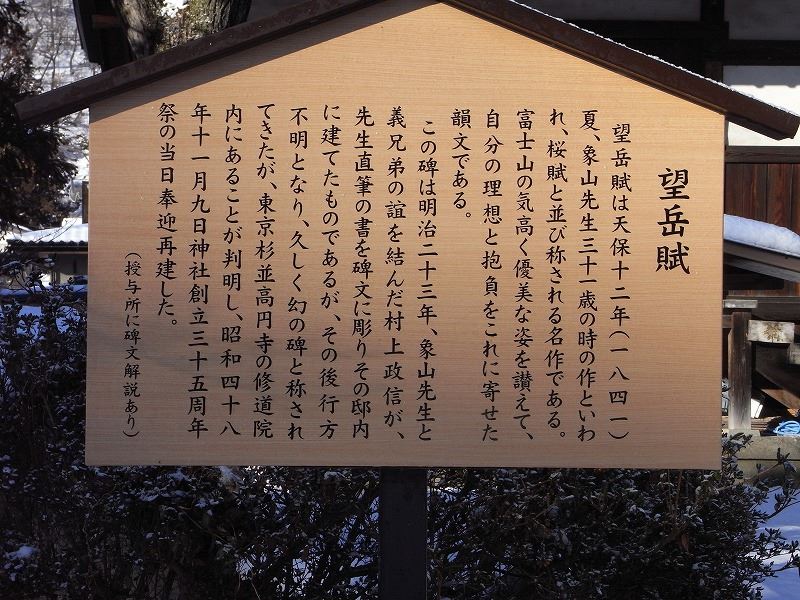 望岳賦
望岳賦は天保十二年(一八四一)
夏、象山先生三十一歳の時の作といわ
れ、桜賦と並び称される名作である。
富士山の気高く優美な姿を讃えて、
自分の理想と抱負をこれに寄せた
韻文である。
この碑は明治二十三年、象山先生と
義兄弟の誼を結んだ村上政信が、
先生直筆の書を碑文に彫りその邸内
に建てたものであるが、その後行方
不明となり、久しく幻の碑と称され
てきたが、東京杉並高円寺の修道院
内にあることが判明し、昭和四十八
年十一月九日神社創立三十五周年
祭の当日奉迎再建した。
(授与所に碑文解説あり)